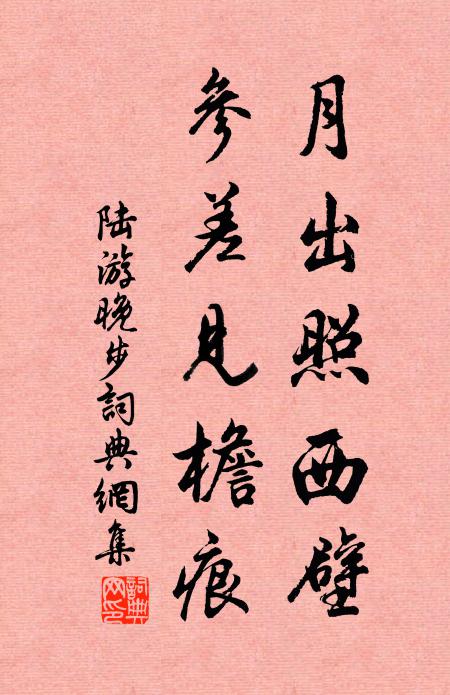 月出照西壁
參差見檐痕
陆游晚步詞典網集
詞典網印